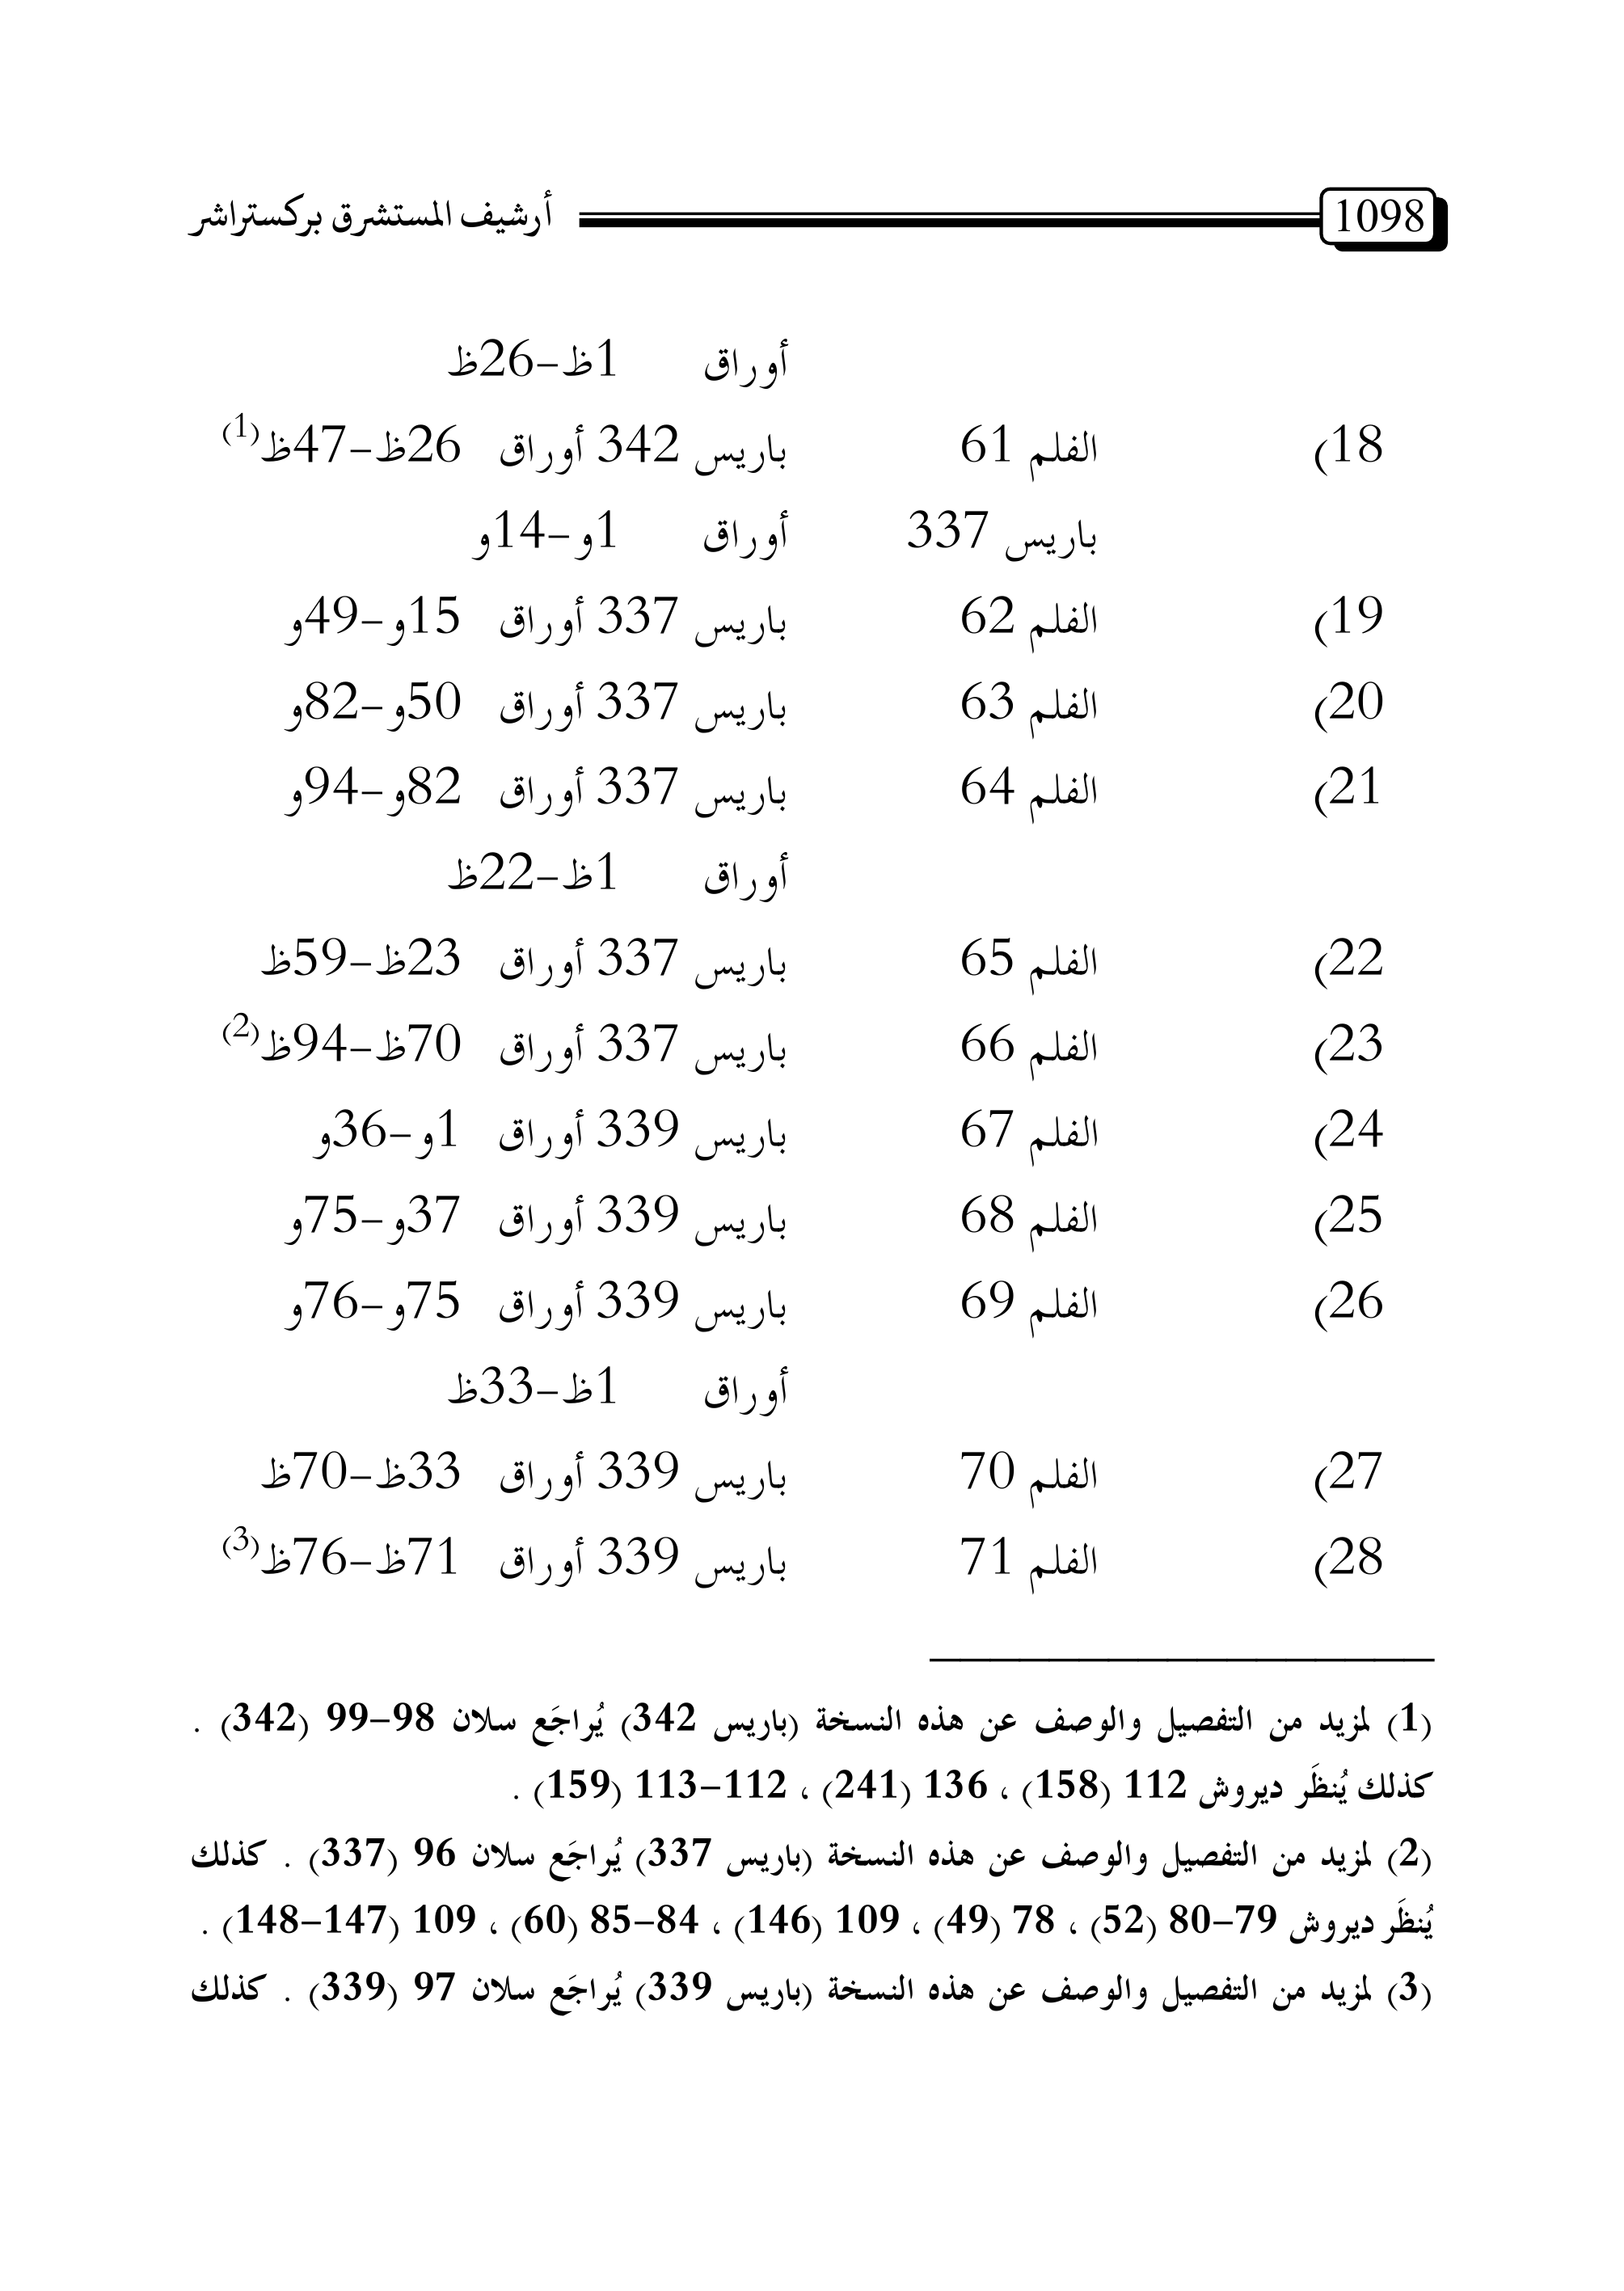 1098 أرشيف المستشرق بركستراشر
أوراق 1ظ–26ظ
18) الفلم 61 باريس 342 أوراق 26ظ–47ظ(1)
باريس 337 أوراق 1و–14و
19) الفلم 62 باريس 337 أوراق 15و–49و
20) الفلم 63 باريس 337 أوراق 50و–82و
21) الفلم 64 باريس 337 أوراق 82و–94و
أوراق 1ظ–22ظ
22) الفلم 65 باريس 337 أوراق 23ظ–59ظ
23) الفلم 66 باريس 337 أوراق 70ظ–94ظ(2)
24) الفلم 67 باريس 339 أوراق 1و–36و
25) الفلم 68 باريس 339 أوراق 37و–75و
26) الفلم 69 باريس 339 أوراق 75و–76و
أوراق 1ظ–33ظ
27) الفلم 70 باريس 339 أوراق 33ظ–70ظ
28) الفلم 71 باريس 339 أوراق 71ظ–76ظ(3)
(1) لمزيد من التفصيل والوصف عن هذه النسخة (باريس 342) يُراجَع سلان 98–99 (342) .
كذلك يُنظَر ديروش 112 (158) ، 136 (241) ، 112–113 (159) .
(2) لمزيد من التفصيل والوصف عن هذه النسخة (باريس 337) يُراجَع سلان 96 (337) . كذلك
يُنظَر ديروش 79–80 (52) ، 78 (49) ، 109 (146) ، 84–85 (60) ، 109 (147–148) .
(3) لمزيد من التفصيل والوصف عن هذه النسخة (باريس 339) يُراجَع سلان 97 (339) . كذلك